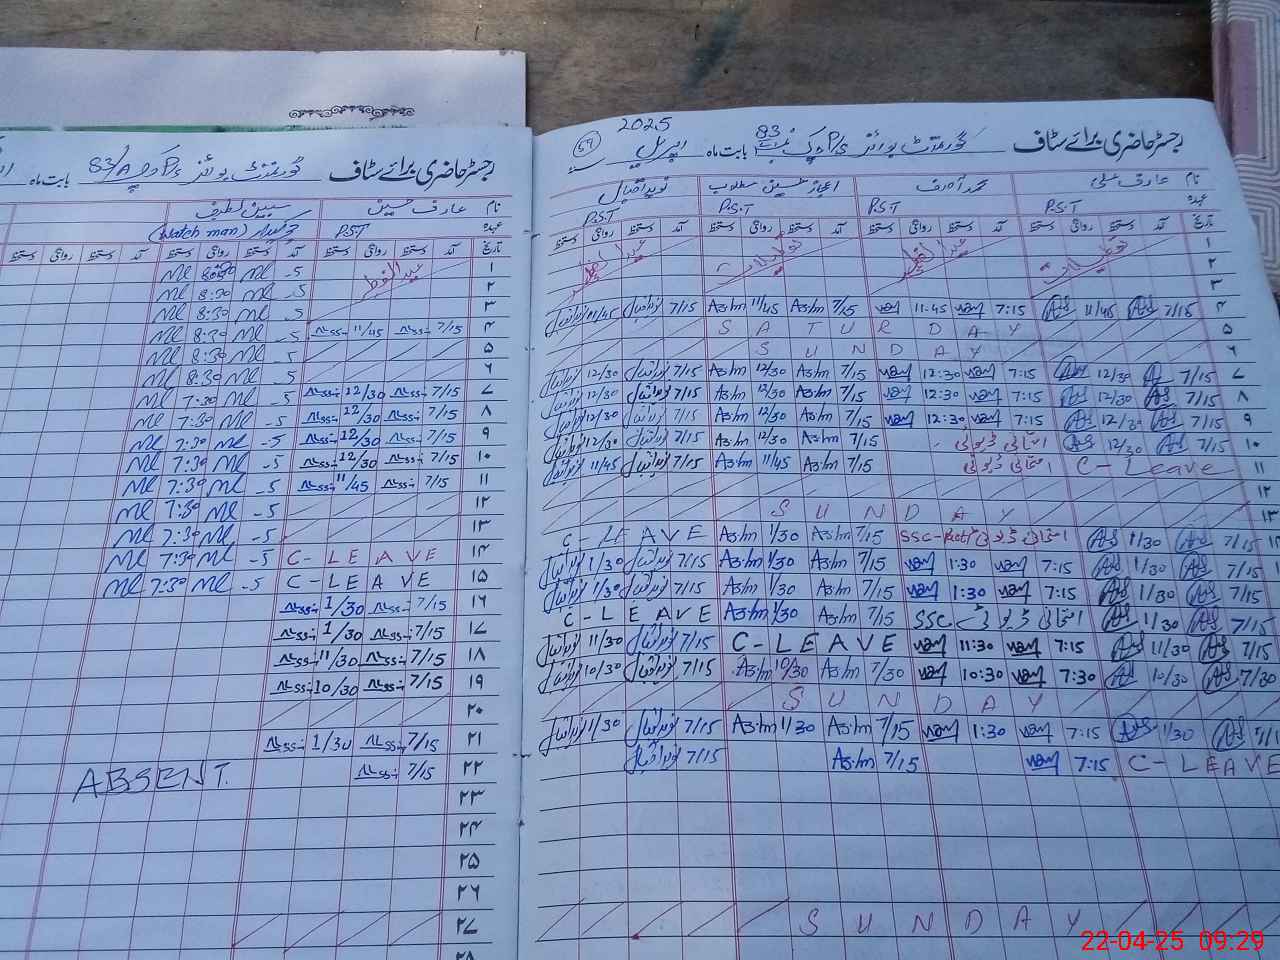 2025
59
رجسٹر حاضری برائے سٹاف گورنمنٹ بوائز P/S چک نمبر 83 بابت ماہ اپریل
نام عارف علی محمد آصف اعجاز حسین مطلوب نوید اقبال
عہدہ P.S.T P.S.T P.S.T P.S.T
تاریخ آمد دستخط روانگی دستخط آمد دستخط روانگی دستخط آمد دستخط روانگی دستخط آمد دستخط روانگی دستخط
۱ تعطیلات عید الفطر تعطیلات عید الفطر
۲
۳
۴ 7/15 11/45 7:15 11:45 7/15 Asim 11/45 Asim 7/15 نوید اقبال 11/45 نوید اقبال
۵ S A T U R D A Y
۶ S U N D A Y
۷ 7/15 12/30 7:15 12:30 7/15 Asim 12/30 Asim 7/15 نوید اقبال 12/30 نوید اقبال
۸ 7/15 12/30 7:15 12:30 7/15 Asim 12/30 Asim 7/15 نوید اقبال 12/30 نوید اقبال
۹ 7/15 12/30 7:15 12:30 7/15 Asim 12/30 Asim 7/15 نوید اقبال 12/30 نوید اقبال
۱۰ 7/15 12/30 امتحانی ڈیوٹی 7/15 Asim 12/30 Asim 7/15 نوید اقبال 12/30 نوید اقبال
۱۱ C-Leave امتحانی ڈیوٹی 7/15 Asim 11/45 Asim 7/15 نوید اقبال 11/45 نوید اقبال
۱۲
۱۳ S U N D A Y
7/15 1/30 SSC امتحانی ڈیوٹی 7/15 Asim 1/30 Asim C-LEAVE
7/15 1/30 7:15 1:30 7/15 Asim 1/30 Asim 7/15 نوید اقبال 1/30 نوید اقبال
7/15 1/30 7:15 1:30 7/15 Asim 1/30 Asim 7/15 نوید اقبال 1/30 نوید اقبال
7/15 1/30 SSC امتحانی ڈیوٹی 7/15 Asim 1/30 Asim C-LEAVE
7/15 11/30 7:15 11:30 C-LEAVE 7/15 نوید اقبال 11/30 نوید اقبال
7/30 10/30 7:30 10:30 7/30 Asim 10/30 Asim 7/15 نوید اقبال 10/30 نوید اقبال
S U N D A Y
1/30 7:15 1:30 7/15 Asim 1/30 Asim 7/15 نوید اقبال 1/30 نوید اقبال
C-LEAVE 7:15 7/15 Asim 7/15 نوید اقبال
S U N D A Y
رجسٹر حاضری برائے سٹاف گورنمنٹ بوائز P/S 83/A بابت ماہ
نام عارف حسین سبین لطیف
عہدہ P.S.T چوکیدار (Watch man)
تاریخ آمد دستخط روانگی دستخط آمد دستخط روانگی دستخط آمد دستخط روانگی دستخط
۱ عید الفطر 5 Ml 8:30 Ml
۲ 5 Ml 8:30 Ml
۳ 5 Ml 8:30 Ml
۴ 7/15 11/45 5 Ml 8:30 Ml
۵ 5 Ml 8:30 Ml
۶ 5 Ml 8:30 Ml
۷ 7/15 12/30 5 Ml 7:30 Ml
۸ 7/15 12/30 5 Ml 7:30 Ml
۹ 7/15 12/30 5 Ml 7:30 Ml
۱۰ 7/15 12/30 5 Ml 7:30 Ml
۱۱ 7/15 11/45 5 Ml 7:30 Ml
۱۲ 5 Ml 7:30 Ml
۱۳ 5 Ml 7:30 Ml
۱۴ C-LEAVE 5 Ml 7:30 Ml
۱۵ C-LEAVE 5 Ml 7:30 Ml
۱۶ 7/15 1/30
۱۷ 7/15 1/30
۱۸ 7/15 11/30
۱۹ 7/15 10/30
۲۰
۲۱ 7/15 1/30
۲۲ 7/15 ABSENT.
۲۳
۲۴
۲۵
۲۶
۲۷
۲۸
22-04-25 09:29